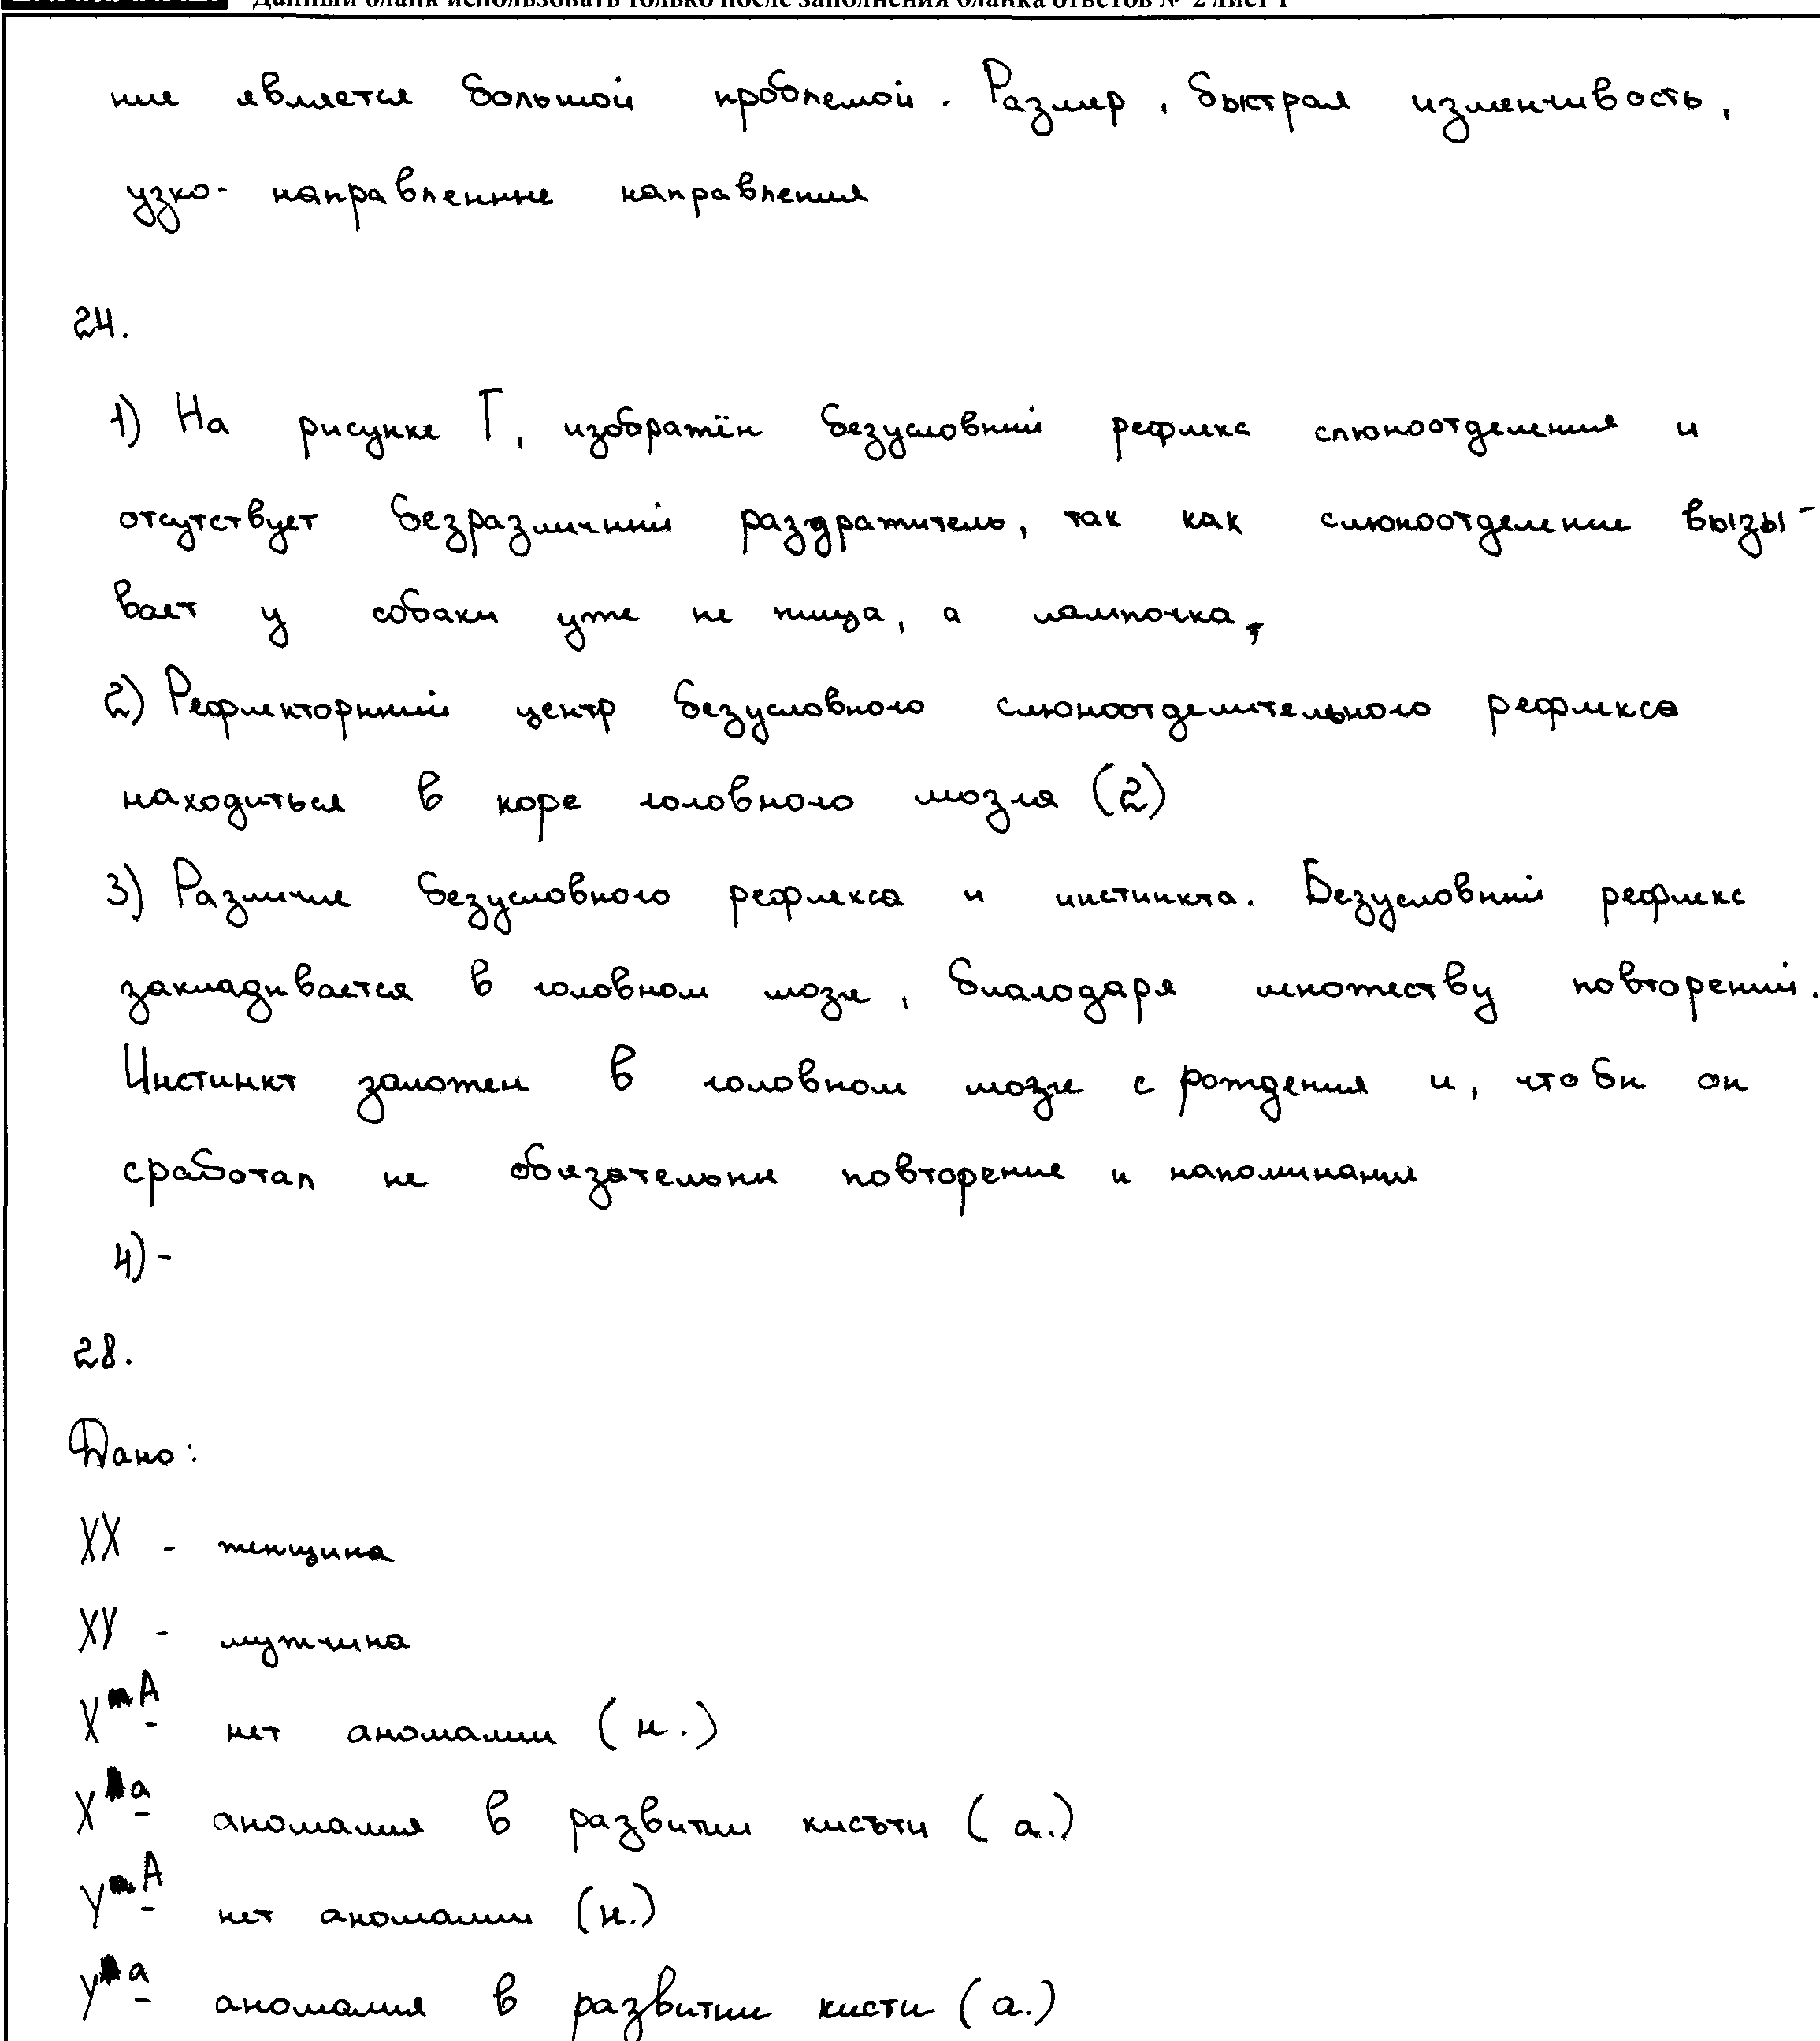 Данный бланк использовать только после заполнения бланка ответов № 2 лист 1
ние является большой проблемой. Размер, быстрая изменчивость,
узко- направленные направления
24.
1) На рисунке Г, изображён безусловный рефлекс слюноотделения и
отсутствует безразличный раздражитель, так как слюноотделение вызы-
вает у собаки уже не пища, а лампочка,
2) Рефлекторный центр безусловного слюноотделительного рефлекса
находиться в коре головного мозга (2)
3) Различие безусловного рефлекса и инстинкта. Безусловный рефлекс
закладывается в головном мозге, благодаря множеству повторений.
Инстинкт заложен в головном мозге с рождения и, чтобы он
сработал не обязательны повторение и напоминания
4) -
28.
Дано:
XX - женщина
XY - мужчина
X^A - нет аномалии (н.)
X^a - аномалия в развитии кисьти (а.)
Y^A - нет аномалии (н.)
Y^a - аномалия в развитии кисти (а.)